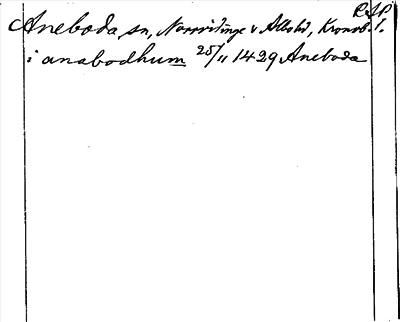 RAP
Aneboda sn, Norrvidinge & Allbo hd, Kronob. l.
i anabodhum 25/11 1429 Aneboda